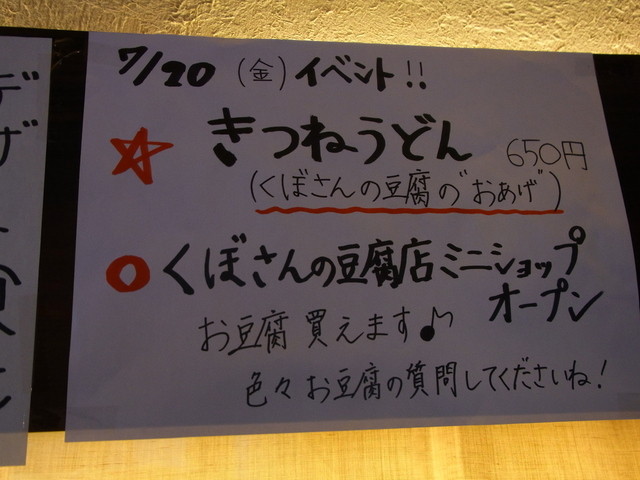 7/20 (金) イベント!!
☆ きつねうどん 650円
(くぼさんの豆腐の"おあげ")
○ くぼさんの豆腐店ミニショップ
オープン
お豆腐買えます♪
色々お豆腐の質問してくださいね!